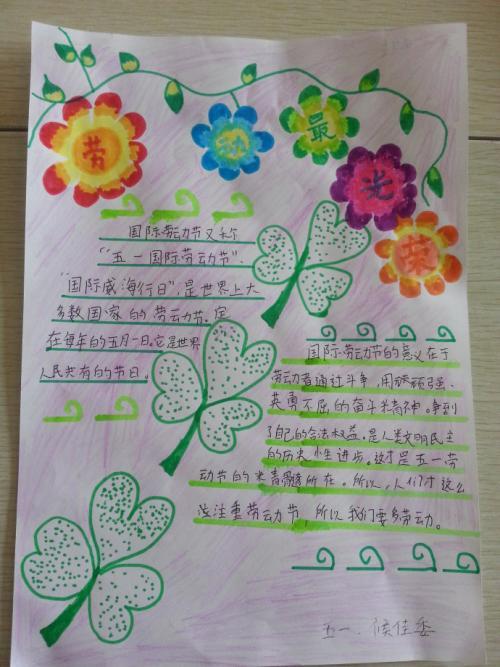 劳动最光荣
国际劳动节又称
“五一国际劳动节”、
“国际威海行日”,是世界上大
多数国家的劳动节。定
在每年的五月一日。它是世界
人民共有的节日。
国际劳动节的意义在于
劳动者通过斗争,用顽强、
英勇不屈的奋斗精神。争到
了自己的合法权益,是人类文明民主
的历史性进步。这才是五一劳
动节的精髓所在。所以,人们才这么
注重劳动节,所以我们要多劳动。
五一、侯佳委